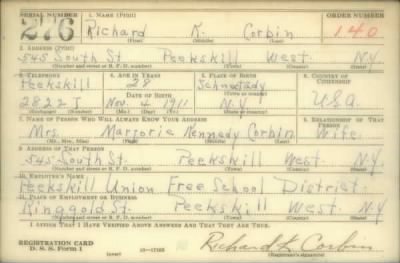 SERIAL NUMBER 1. NAME (Print) ORDER NUMBER
276 Richard K. Corbin 140
(First) (Middle) (Last)
2. ADDRESS (Print)
545 South St. Peekskill West. N.Y.
(Number and street or R. F. D. number) (Town) (County) (State)
3. TELEPHONE 4. AGE IN YEARS 5. PLACE OF BIRTH 6. COUNTRY OF CITIZENSHIP
Peekskill 28 Schnectady
DATE OF BIRTH (Town or county)
2822 J Nov. 4 1911 N.Y. U.S.a.
(Mo.) (Day) (Yr.) (State or country)
7. NAME OF PERSON WHO WILL ALWAYS KNOW YOUR ADDRESS 8. RELATIONSHIP OF THAT PERSON
Mrs. Marjorie Kennedy Corbin Wife
(Mr., Mrs., Miss) (First) (Middle) (Last)
9. ADDRESS OF THAT PERSON
545 South St. Peekskill West. N.Y.
(Number and street or R. F. D. number) (Town) (County) (State)
10. EMPLOYER'S NAME
Peekskill Union Free School District
11. PLACE OF EMPLOYMENT OR BUSINESS
Ringgold St. Peekskill West. N.Y.
(Number and street or R. F. D. number) (Town) (County) (State)
I AFFIRM THAT I HAVE VERIFIED ABOVE ANSWERS AND THAT THEY ARE TRUE.
REGISTRATION CARD
D. S. S. Form 1 (over) Richard K. Corbin
(Registrant's signature)